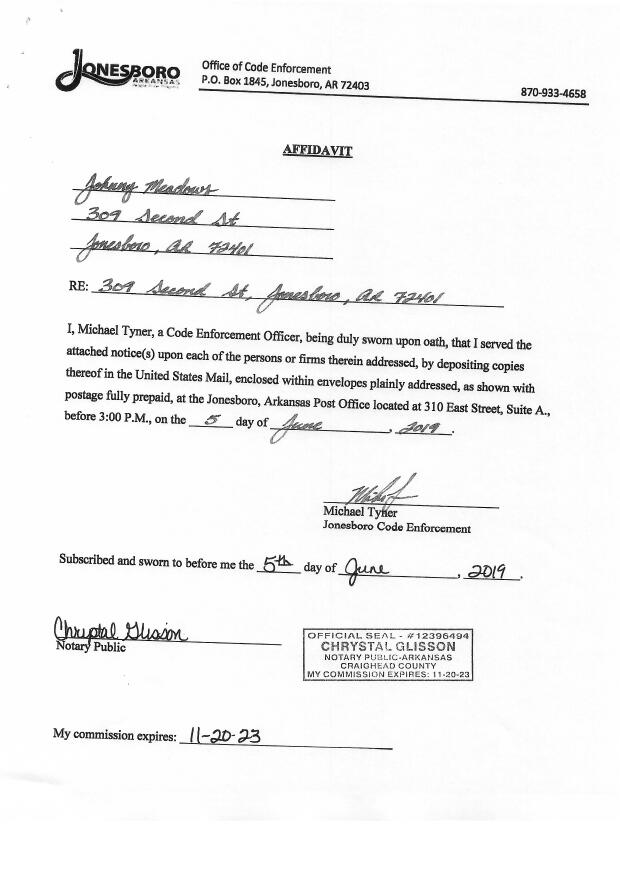 JONESBORO
ARKANSAS
Office of Code Enforcement
P.O. Box 1845, Jonesboro, AR 72403
870-933-4658
AFFIDAVIT
Johnny Meadows
309 Second St
Jonesboro, AR 72401
RE: 309 Second St, Jonesboro, AR 72401
I, Michael Tyner, a Code Enforcement Officer, being duly sworn upon oath, that I served the
attached notice(s) upon each of the persons or firms therein addressed, by depositing copies
thereof in the United States Mail, enclosed within envelopes plainly addressed, as shown with
postage fully prepaid, at the Jonesboro, Arkansas Post Office located at 310 East Street, Suite A.,
before 3:00 P.M., on the 5 day of June, 2019.
Michael Tyner
Jonesboro Code Enforcement
Subscribed and sworn to before me the 5th day of June, 2019.
Chrystal Glisson
Notary Public
OFFICIAL SEAL - #12396494
CHRYSTAL GLISSON
NOTARY PUBLIC-ARKANSAS
CRAIGHEAD COUNTY
MY COMMISSION EXPIRES: 11-20-23
My commission expires: 11-20-23